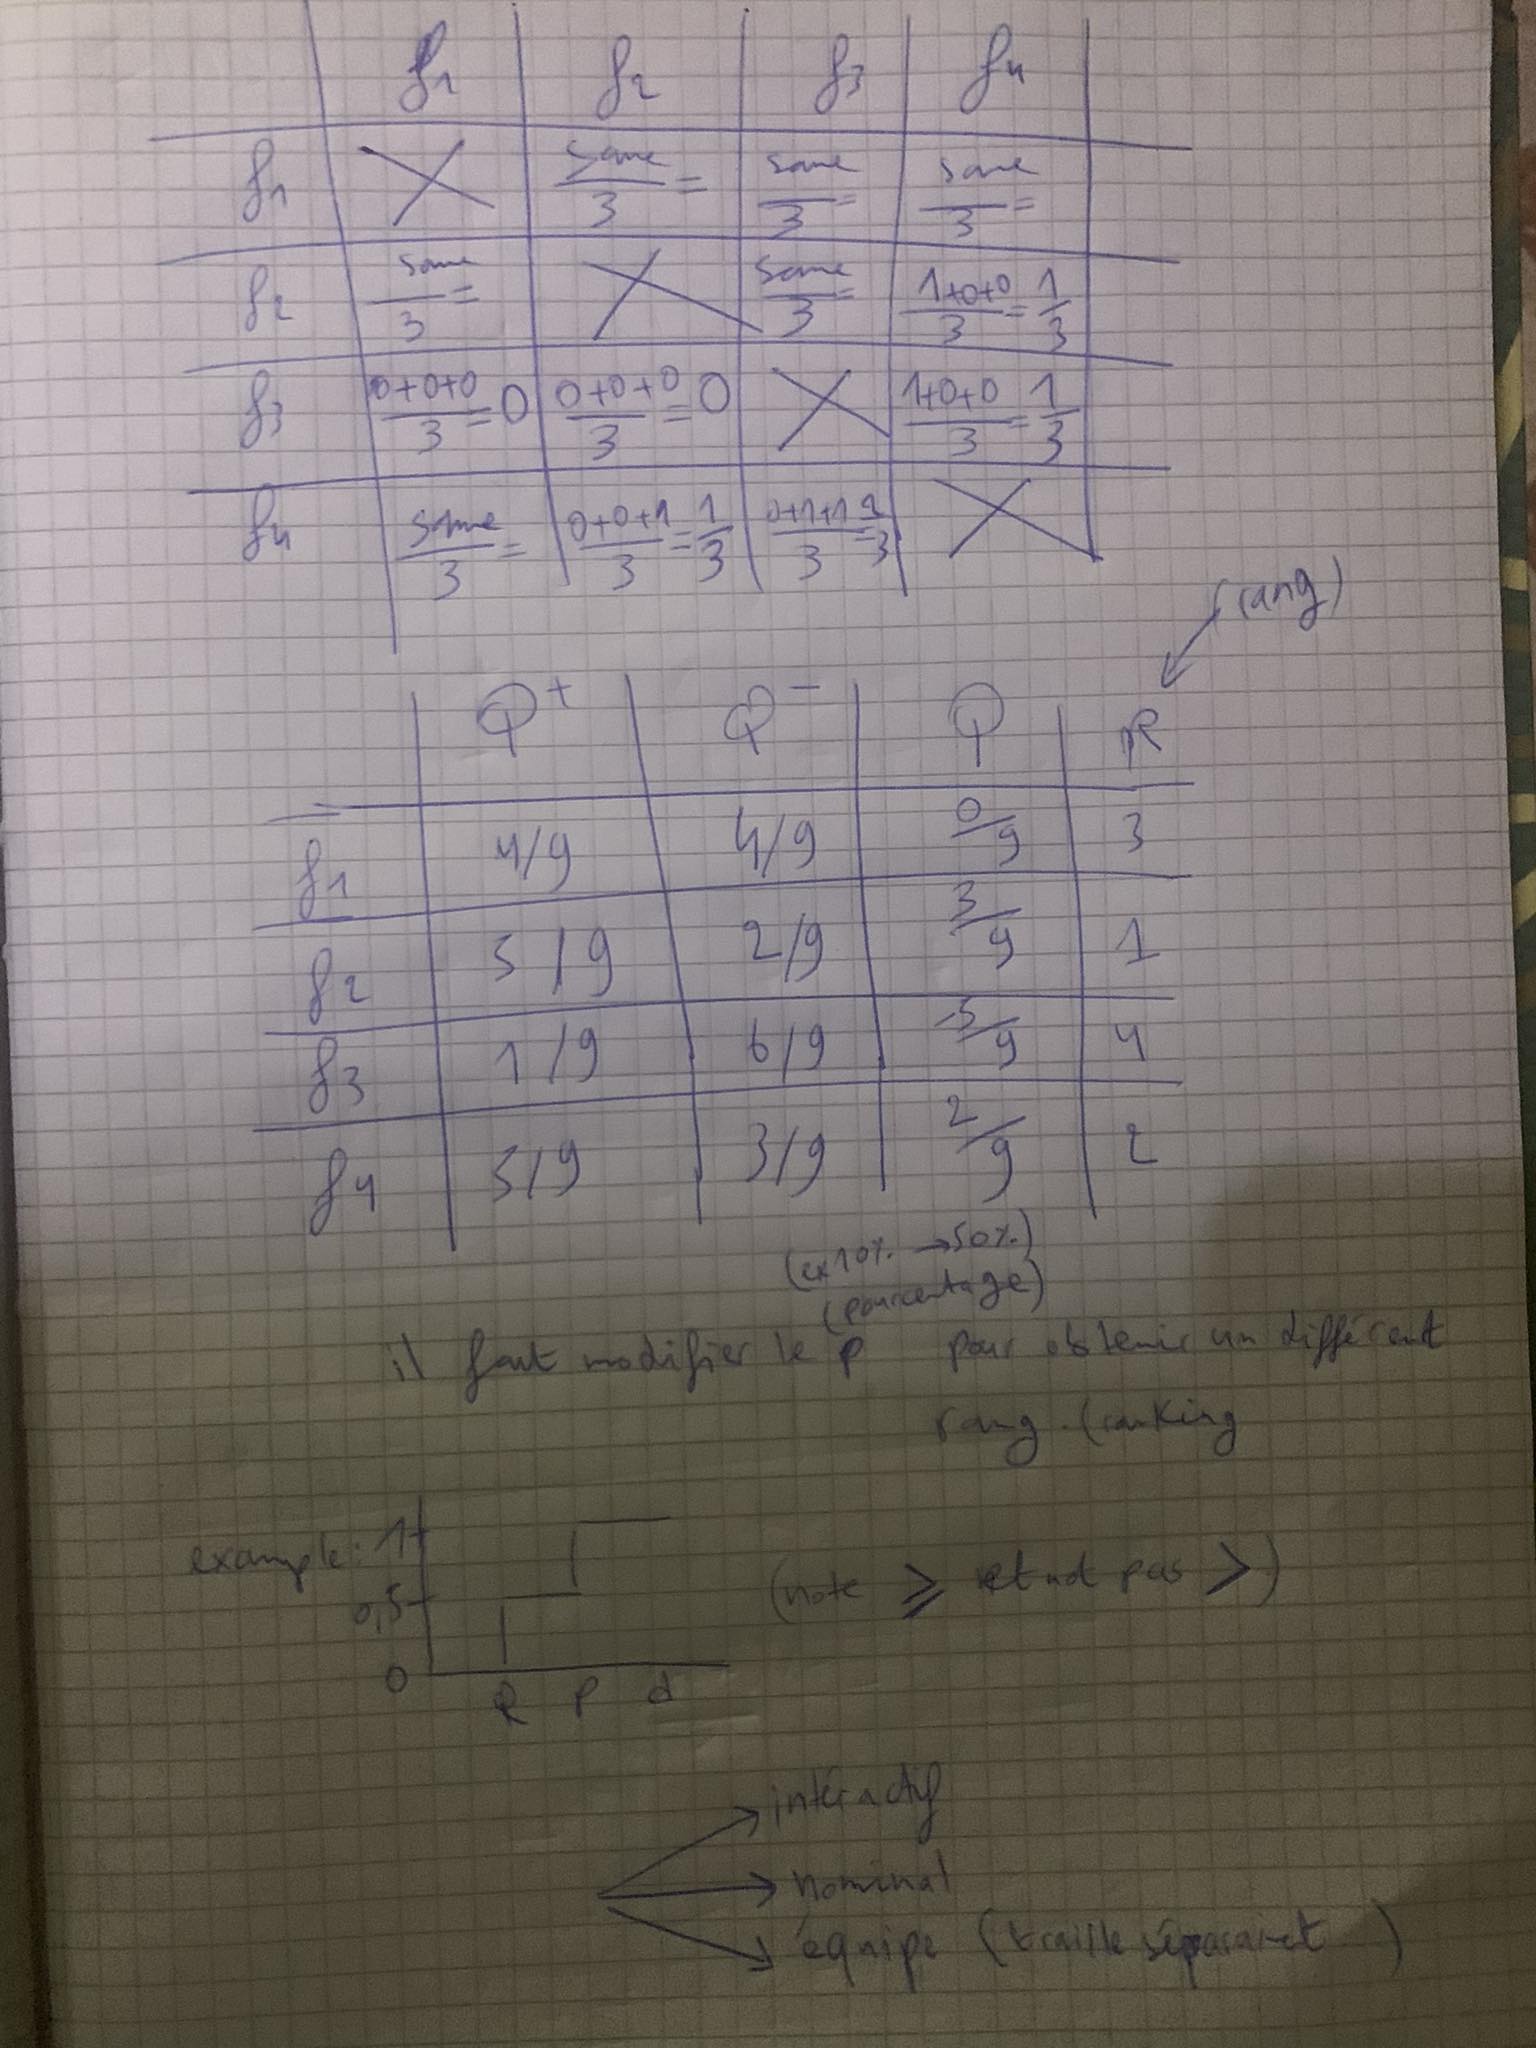 f1 f2 f3 f4
f1 X same/3 = same/3 = same/3 =
f2 same/3 = X same/3 = 1+0+0/3 = 1/3
f3 0+0+0/3 = 0 0+0+0/3 = 0 X 1+0+0/3 = 1/3
f4 same/3 = 0+0+1/3 = 1/3 0+1+1/3 = 2/3 X
(rang)
φ+ φ- φ R
f1 4/9 4/9 0/9 3
f2 5/9 2/9 3/9 1
f3 1/9 6/9 -5/9 4
f4 5/9 3/9 2/9 2
(ex 10% → 50%)
(pourcentage)
il faut modifier le p pour obtenir un différent
rang (ranking
example: 1
0,5 (note ⩾ et not pas >)
0
Q P d
intéractif
nominal
équipe (